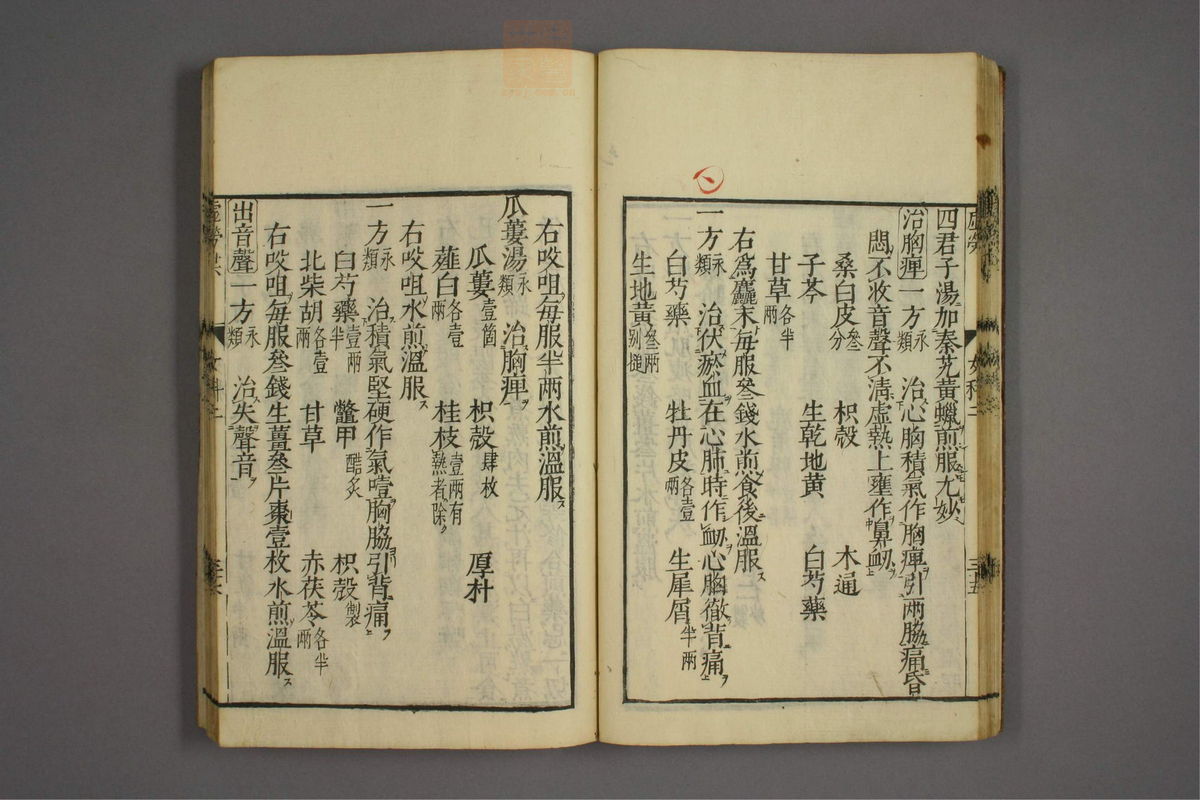 四君子湯加秦艽黃蠟煎服尤妙
治胸痺一方類永治心胸積氣作胸痺引兩脇痛昏
悶不收音聲不清虛熱上壅作鼻衂
桑白皮叄分 枳殼 木通
子芩 生乾地黃 白芍藥
甘草各半兩
右爲麤末每服叄錢水煎食後溫服
一方類永治伏瘀血在心肺時作衂心胸徹背痛
白芍藥 牡丹皮各壹兩 生犀屑半兩
生地黃叄兩別搥
女科二
三十五
右㕮咀每服半兩水煎溫服
瓜蔞湯類永治胸痺
瓜蔞壹箇 枳殼肆枚 厚朴
薤白各壹兩 桂枝壹兩有熱者除
右㕮咀水煎溫服
一方類永治積氣堅硬作氣噎胸脇引背痛
白芍藥壹兩半 鼈甲醋炙 枳殼製
北柴胡各壹兩 甘草 赤茯苓各半兩
右㕮咀每服叄錢生薑叄片棗壹枚水煎溫服
出音聲一方類永治失聲音